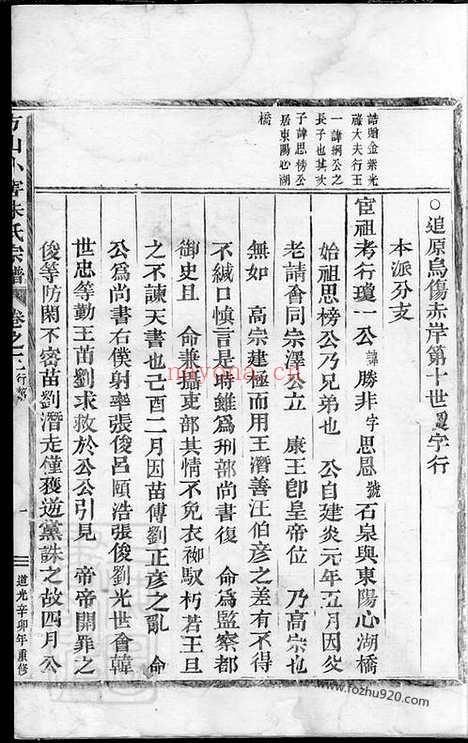 誥贈金紫光
祿大夫行王
一諱桐公之
長子也其次
子諱思榜公
居東陽心湖
橋
○追原烏傷赤岸第十世 字行
本派分支
宦祖考行瓊一公諱勝非字思恩號石泉與東陽心湖橋
始祖思榜公乃兄弟也 公自建炎元年五月因炎
老請會同宗澤公立 康王卽皇帝位 乃高宗也
無如 高宗建極而用王潛善汪伯彥之差有不得
不緘口慎言是時雖爲刑部尚書復 命爲監察都
御史且 命兼攝吏部其情不免衣袽馭朽若王旦
之不諫天書也己酉二月因苗傅劉正彥之亂 命
公爲尚書右僕射率張俊呂頤浩張俊劉光世會韓
世忠等勤王苗劉求救於公公引見 帝帝開罪之
俊等防閑不密苗劉潛走僅獲逆黨誅之故四月公
方山 朱氏宗譜 卷之 行 一 道光辛卯年重修
nayona.com
www.fozhu920.com